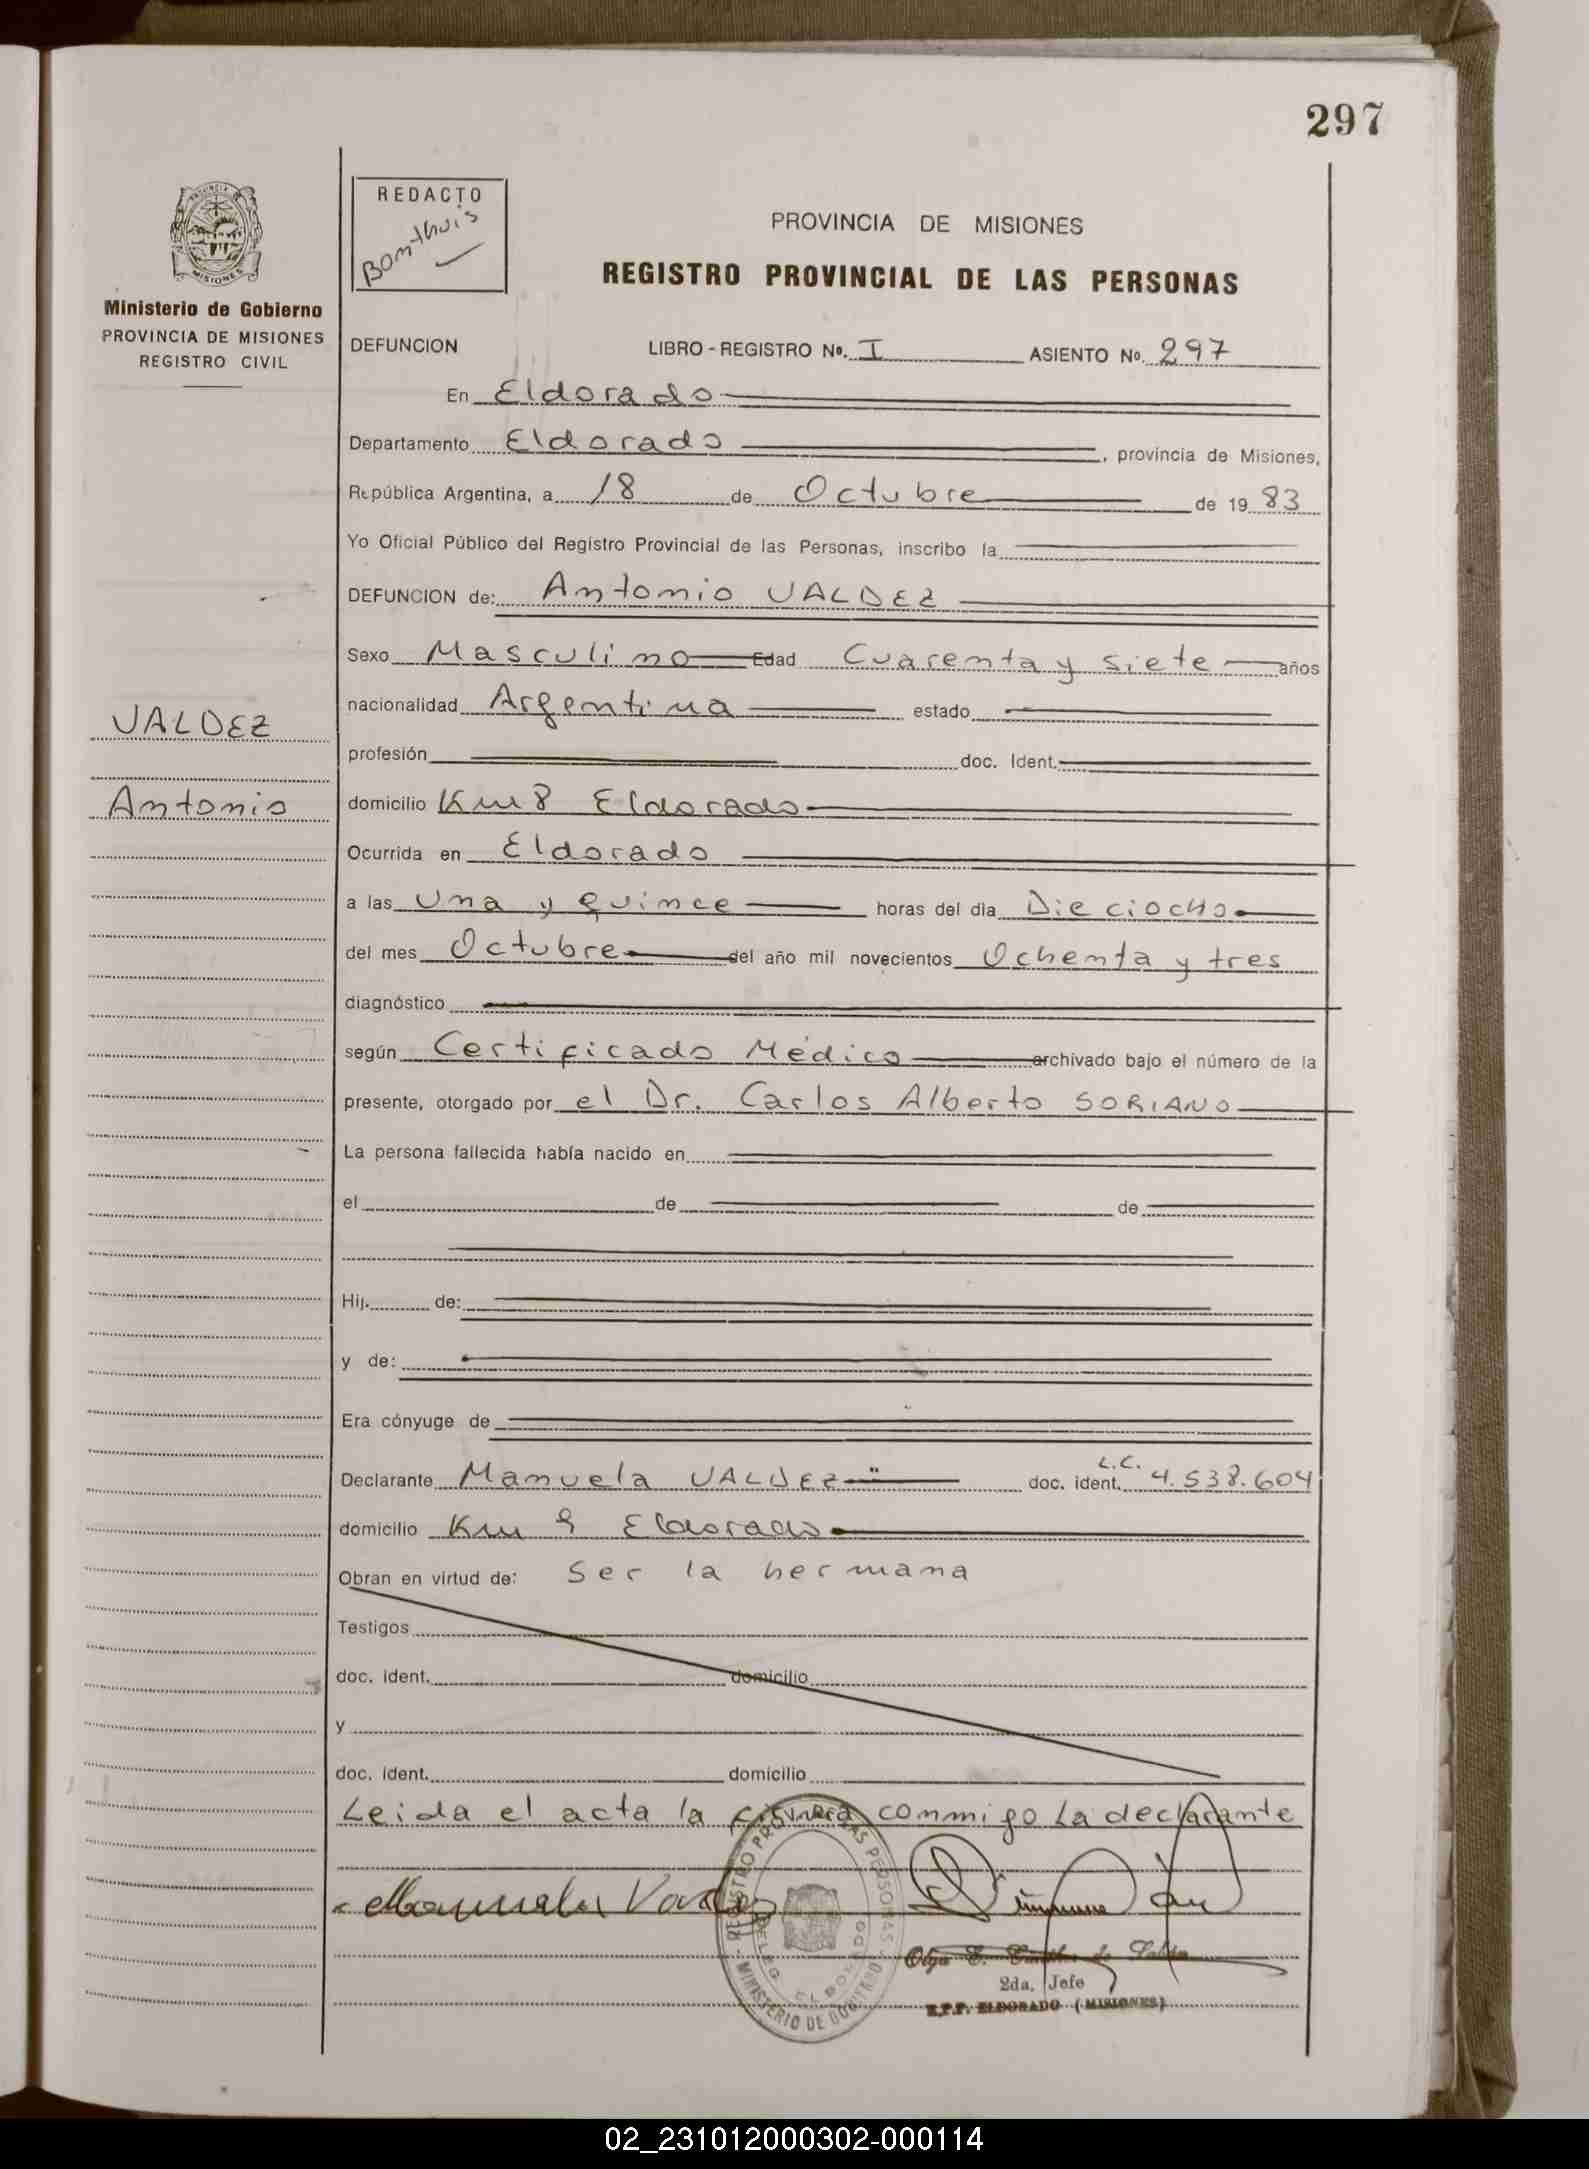 297
REDACTO
Bonthuis
PROVINCIA DE MISIONES
REGISTRO PROVINCIAL DE LAS PERSONAS
PROVINCIA DE
MISIONES
Ministerio de Gobierno
PROVINCIA DE MISIONES
REGISTRO CIVIL
DEFUNCION LIBRO - REGISTRO No. I ASIENTO No. 297
En Eldorado
Departamento Eldorado, provincia de Misiones,
República Argentina, a 18 de Octubre de 1983
Yo Oficial Público del Registro Provincial de las Personas, inscribo la
DEFUNCION de: Antonio VALDEZ
Sexo Masculino Edad Cuarenta y siete años
nacionalidad Argentina estado
VALDEZ
profesión doc. Ident.
Antonio
domicilio Km 8 Eldorado
Ocurrida en Eldorado
a las Una y quince horas del día Dieciocho
del mes Octubre del año mil novecientos Ochenta y tres
diagnóstico
según Certificado Médico archivado bajo el número de la
presente, otorgado por el Dr. Carlos Alberto SORIANO
La persona fallecida había nacido en
el de de
Hij. de:
y de:
Era cónyuge de
Declarante Manuela VALDEZ doc. ident. L.C. 4.538.604
domicilio Km 9 Eldorado
Obran en virtud de: Ser la hermana
Testigos
doc. ident. domicilio
y
doc. ident. domicilio
Leida el acta la firma conmigo La declarante
Manuela
REGISTRO PROV. DE LAS PERSONAS
MINISTERIO DE GOBIERNO
DELEG. ELDORADO
Olga E. de
2da. Jefe
R.P.P. ELDORADO (MISIONES)
02_231012000302-000114